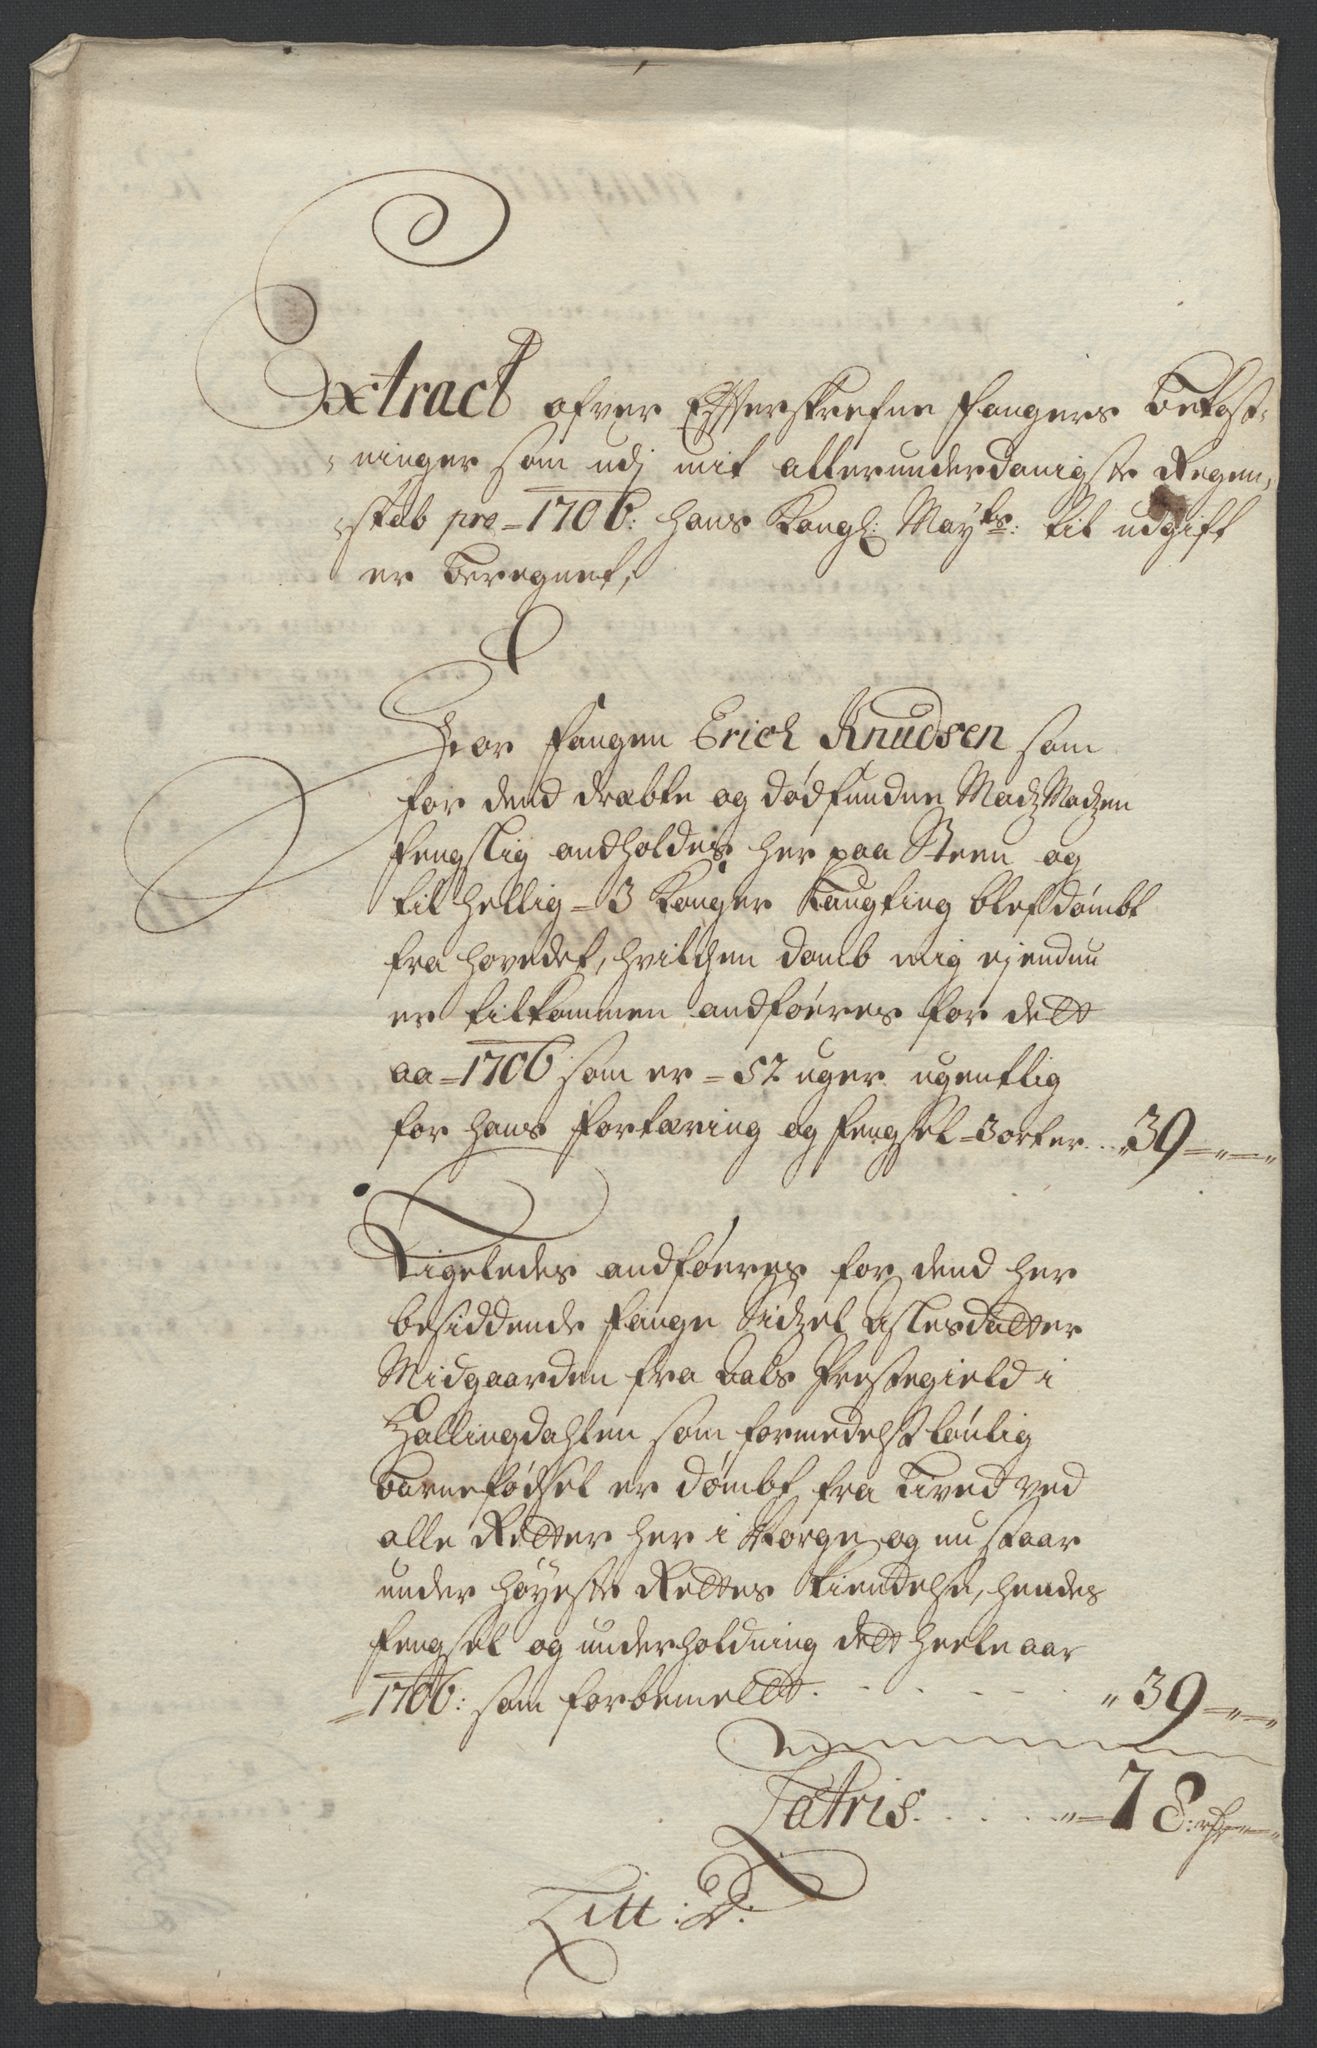 Extract ofver Effterskrefne Fangers Bekost-
ninger som udj mit allerunderdanigste Regen-
skab pro - 1706: hans Kongl: Mayts: til udgift
er beregnet,
For Fangen Erich Knudsen som
for dend dræbte og dødfundne Madz Madzen
fengslig andholdes her paa Steen og
til hellig - 3 Konger Laugting blef dømbt
fra hovedet, hvilchen domb mig ej endnu
er tilkommen andføeres for dett
aa - 1706 som er - 52 uger ugentlig
for hans fortæring og fengsel - 3 orter .. 39 - -
Ligeledes andføeres for dend her
besiddende fange Sidzel Aslesdatter
Midgaarden fra Aals Prestegield i
Hallingdahlen som formedelst lønlig
barnefødsel er dømbt fra lived ved
alle Retter her i Norge og nu staar
under høyeste Rettes kiendelse, hendes
fengsel og underholdning dett heele aar
1706: som forbemeldt . . . . 39 - -
Latris . . . . 78: rdr - -
Litt: D: